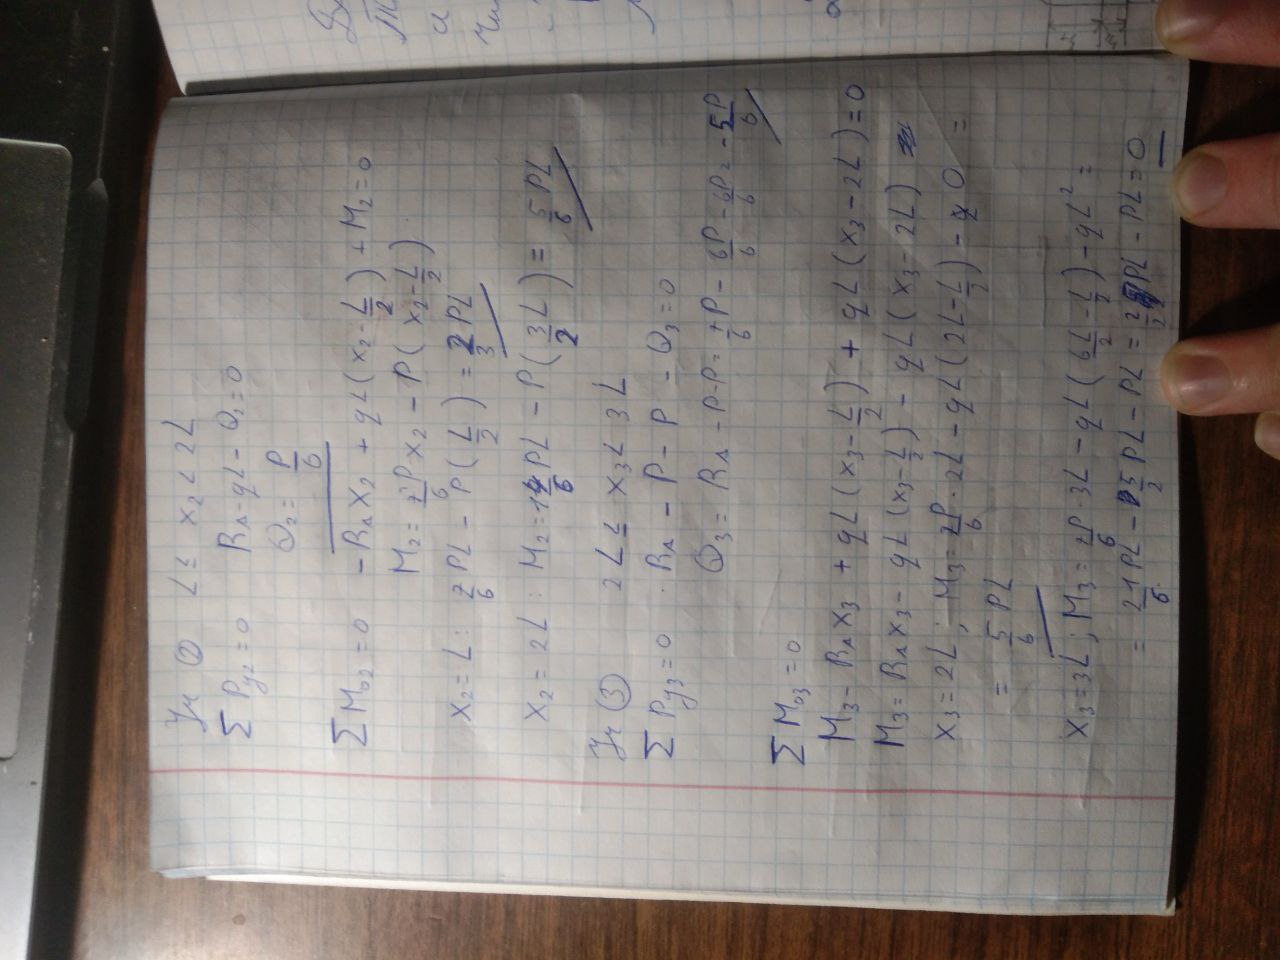 Уч ② L ≤ x₂ < 2L
∑Py₂=0 Rᴀ-qL-Q₂=0
Q₂= P/6
∑Mo₂=0 -Rᴀx₂ + qL(x₂-L/2)+M₂=0
M₂= 7P/6 x₂ - P(x₂-L/2)
x₂=L: 7/6 PL - P(L/2) = 2/3 PL
x₂=2L: M₂= 14/6 PL - P(3/2 L) = 5/6 PL
Уч ③ 2L ≤ x₃ < 3L
∑Py₃=0 Rᴀ-P-P-Q₃=0
Q₃=Rᴀ-P-P= 7/6 P- 6P/6 - 6P/6 = -5P/6
∑Mo₃=0
M₃-Rᴀx₃ + qL(x₃-L/2) + qL(x₃-2L)=0
M₃=Rᴀx₃-qL(x₃-L/2)-qL(x₃-2L)
x₃=2L; M₃= 7P/6 · 2L-qL(2L-L/2)-0 =
= 5/6 PL
x₃=3L; M₃= 7P/6 · 3L-qL(6L/2 - L/2)-qL² =
= 21PL/6 - 5/2 PL-PL= PL-PL=0